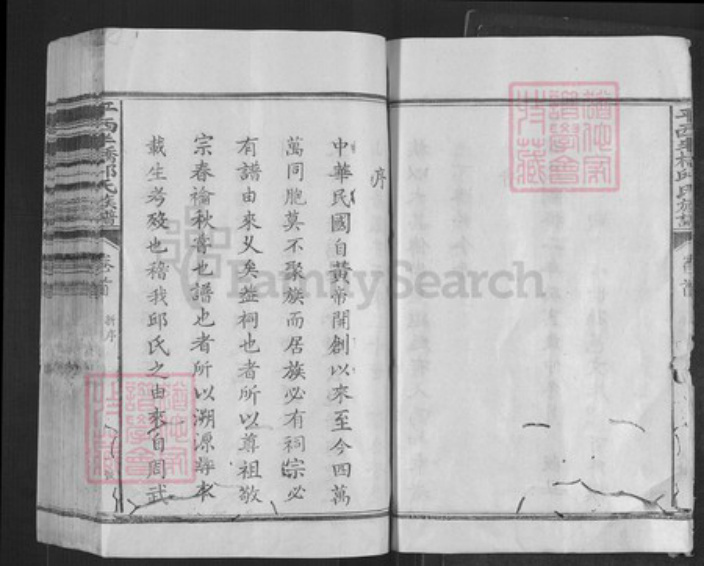 序
中華民國自黃帝開創以來至今四萬
萬同胞莫不聚族而居族必有祠宗必
有譜由來乆矣葢祠也者所以尊祖敬
宗春禴秋嘗也譜也者所以溯源尋本
載生考殁也稽我邱氏之由來自周武
平西
橋邱氏族譜
卷首
新序
平西
橋邱氏族譜
卷首
譜學會
FamilySearch